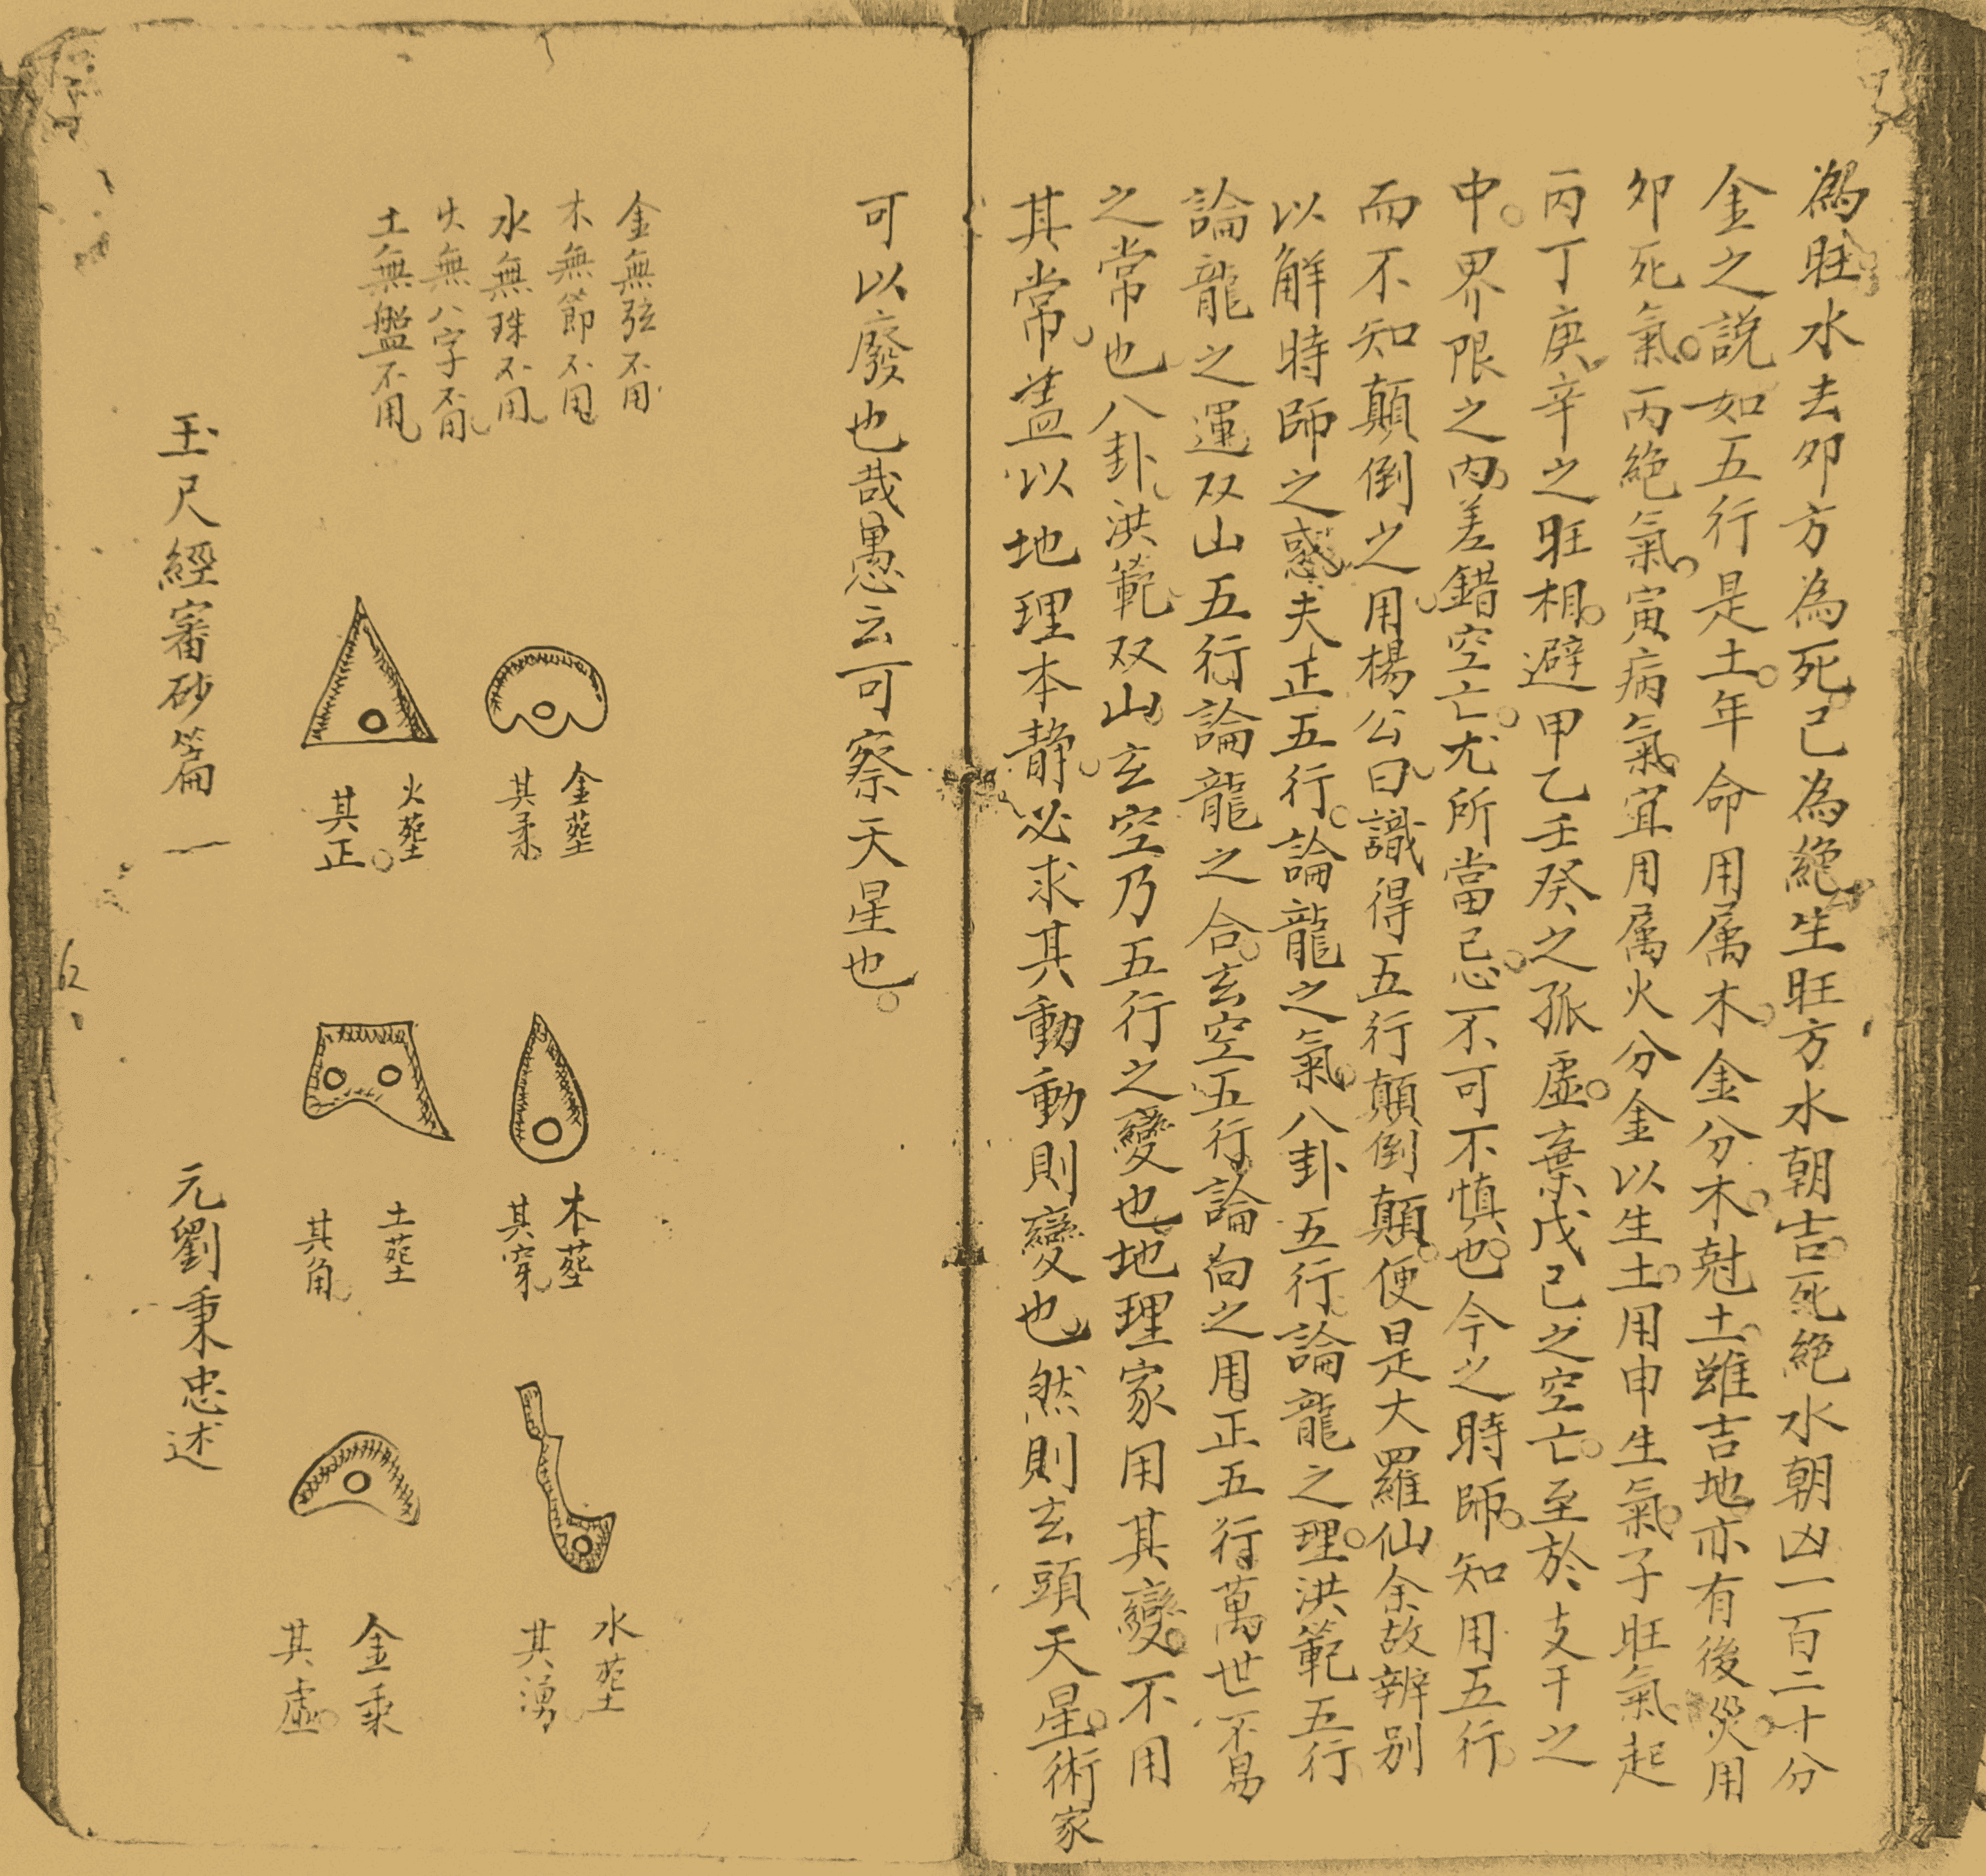 為旺水去卯方為死己為絕生旺方水朝吉死絕水朝凶一百二十分
金之說如五行是土年命用属木金分木尅土雖吉地亦有後災用
卯死氣丙絕氣寅病氣宜用属火分金以生土用申生氣子旺氣起
丙丁庚辛之旺相避甲乙壬癸之孤虛棄戊己之空亡至於支干之
中界限之內差錯空亡尤所當忌不可不慎也今之時師知用五行
而不知顛倒之用楊公曰識得五行顛倒顛便是大羅仙余故辨别
以解時師之惑夫正五行論龍之氣八卦五行論龍之理洪範五行
論龍之運双山五行論龍之合玄空五行論向之用正五行萬世不易
之常也八卦洪範双山玄空乃五行之變也地理家用其變不用
其常盖以地理本静必求其動動則變也然則玄頭天星術家
可以廢也哉愚云可察天星也
金無弦不用
木無節不用
水無珠不用
火無八字不用
土無盤不用
金塟
其柔
火塟
其正
木塟
其穿
土塟
其角
水塟
其湧
金乘
其虛
玉尺經審砂篇一 元劉秉忠述